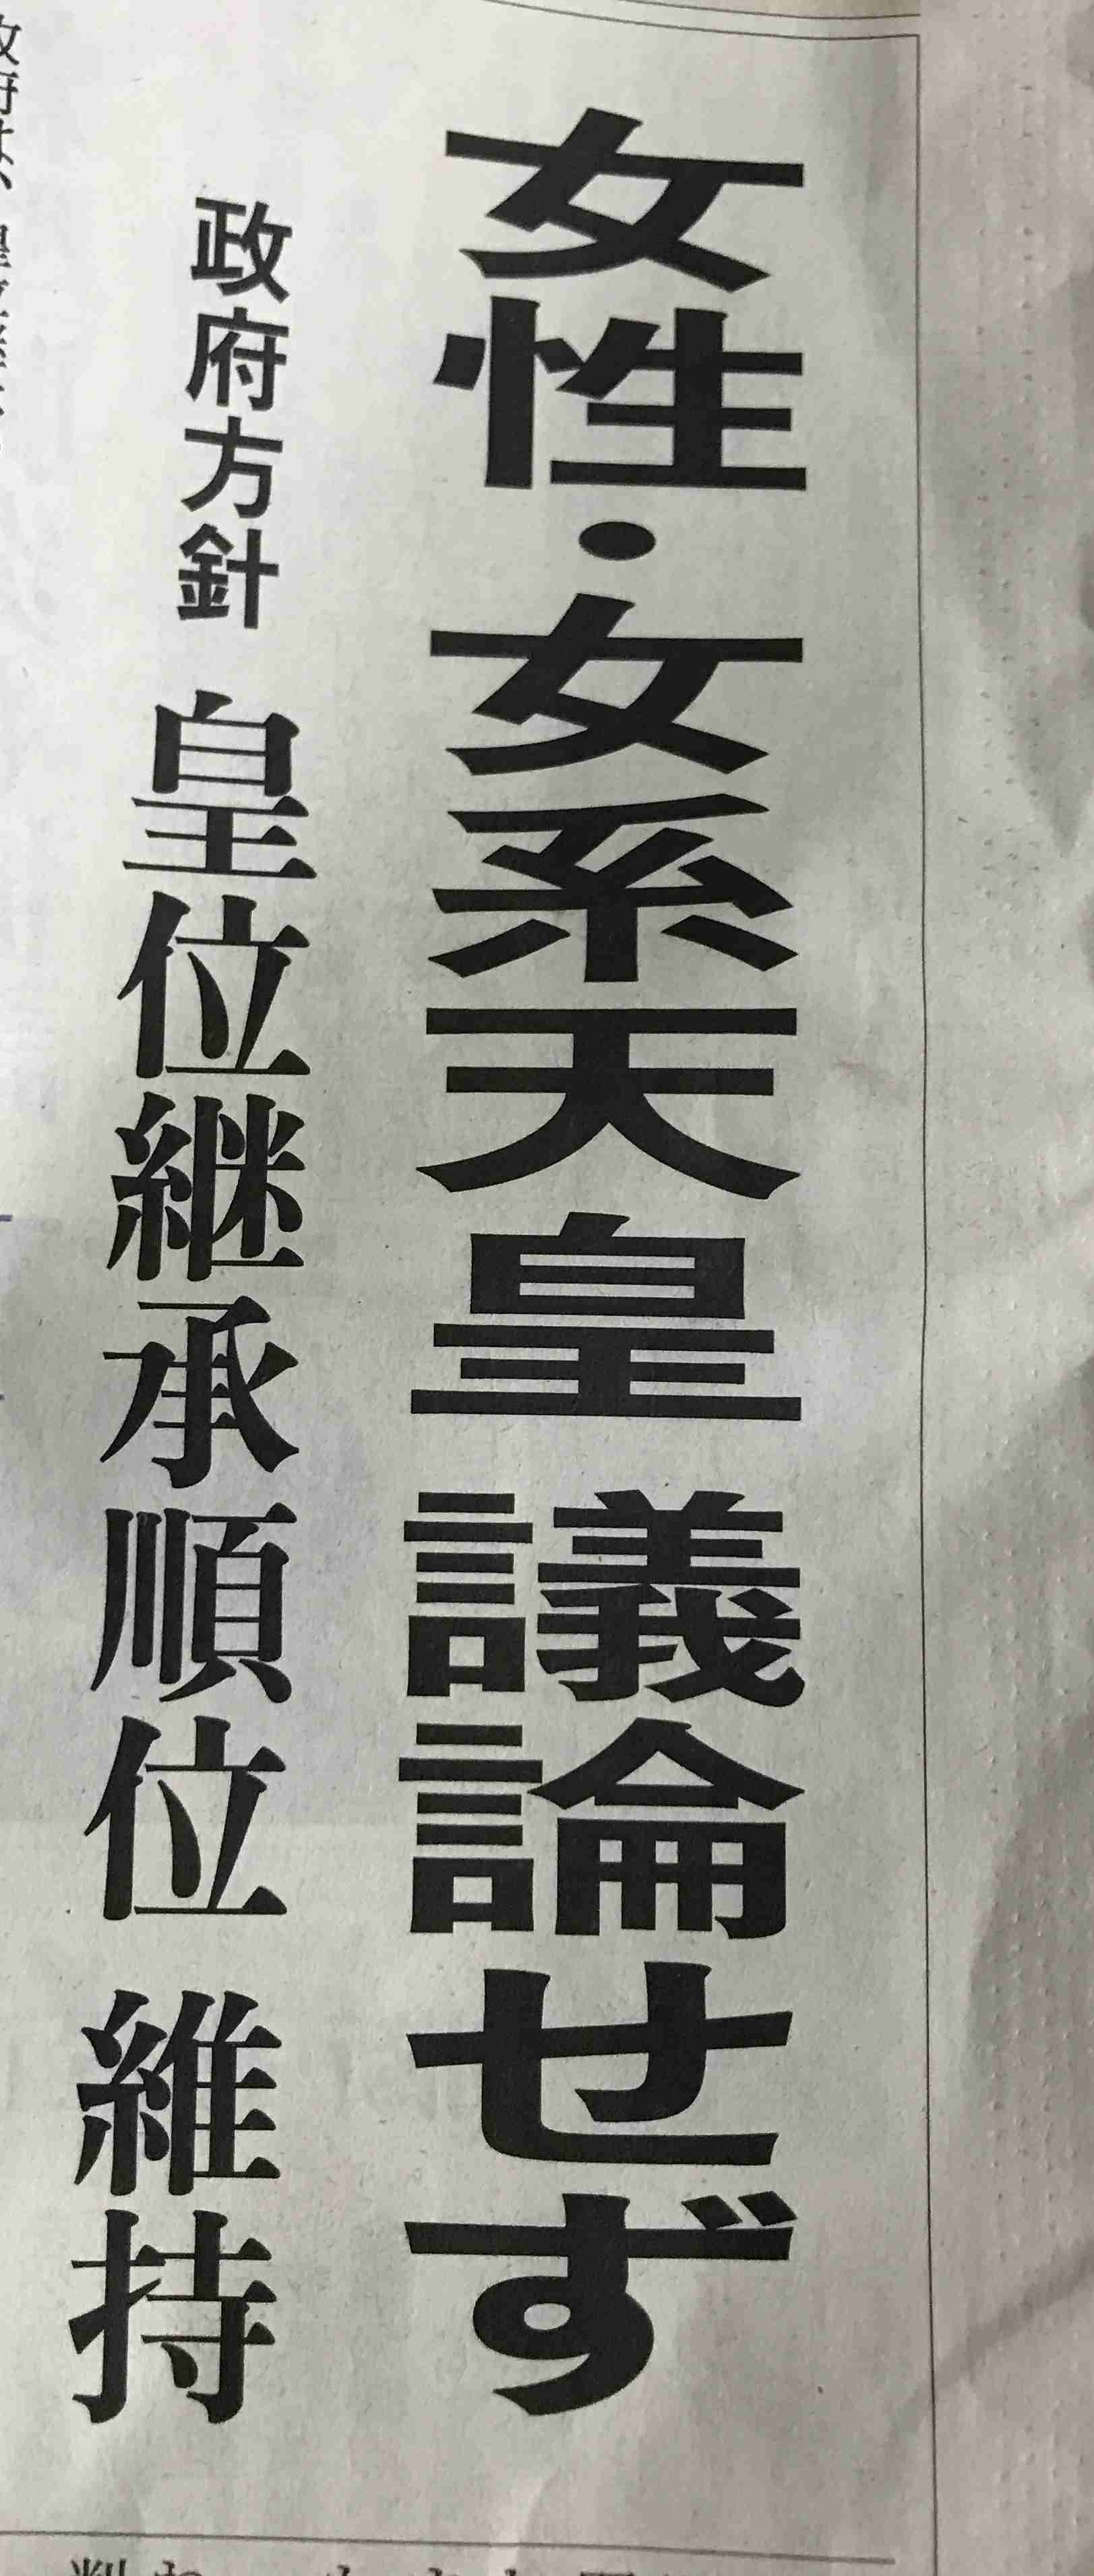 女性・女系天皇 議論せず
政府方針 皇位継承順位 維持